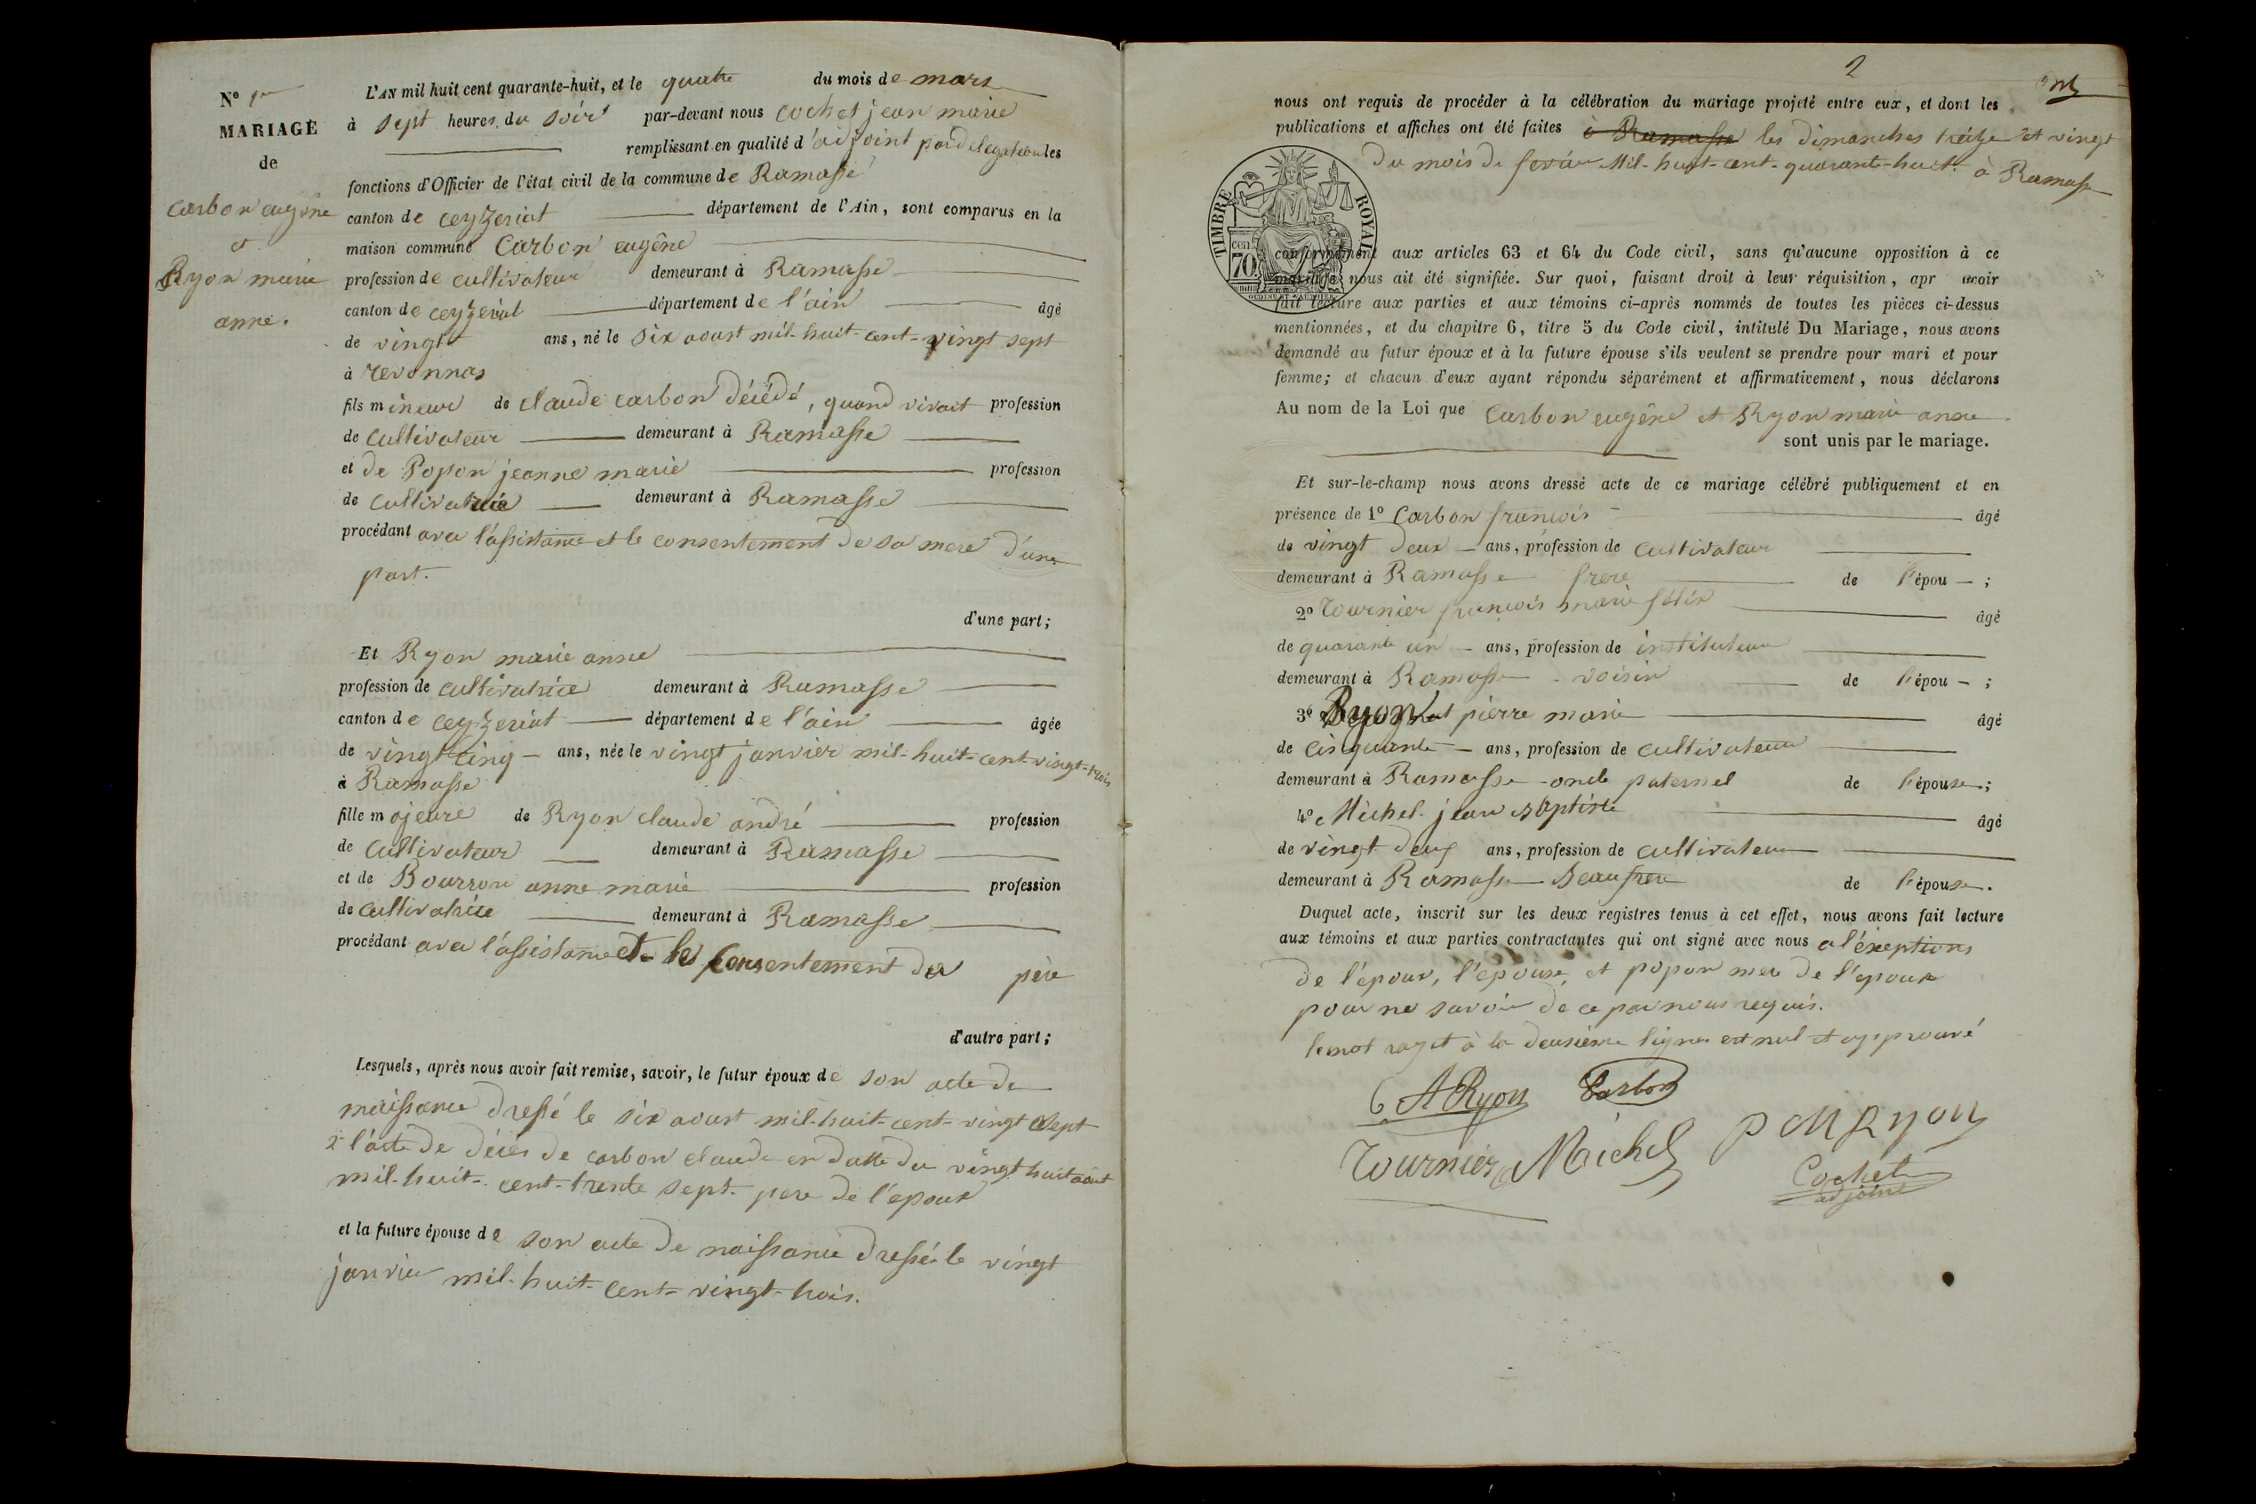 N° 1er
MARIAGE
de
Carbon eugène
et
Ryon marie
anne.
L'AN mil huit cent quarante-huit, et le quatre du mois de mars
à sept heures du soir par-devant nous Cochet jean marie
remplissant en qualité d'adjoint par délégation les
fonctions d'Officier de l'état civil de la commune de Ramasse
canton de ceyzeriat département de l'Ain, sont comparus en la
maison commune Carbon eugêne
profession de cultivateur demeurant à Ramasse
canton de ceyzeriat département de l'ain âgé
de vingt ans, né le six aoust mil-huit-cent-vingt sept
à revonnas
fils mineur de claude carbon décédé, quand vivait profession
de cultivateur demeurant à Ramasse
et de Popon jeanne marie profession
de cultivatrice demeurant à Ramasse
procédant avec l'assistance et le consentement de sa mere d'une
part.
d'une part;
Et Ryon marie anne
profession de cultivatrice demeurant à Ramasse
canton de ceyzeriat département de l'ain âgée
de vingt cinq ans, née le vingt janvier mil-huit-cent-vingt-trois
à Ramasse
fille majeure de Ryon claude andré profession
de cultivateur demeurant à Ramasse
et de Bourron anne marie profession
de cultivatrice demeurant à Ramasse
procédant avec l'assistance et le consentement de père
d'autre part;
Lesquels, après nous avoir fait remise, savoir, le futur époux de son acte de
naissance dressé le six aoust mil-huit-cent-vingt sept
& l'acte de décès de carbon claude en datte du vingt huit août
mil-huit-cent-trente sept. pere de l'epoux
et la future épouse de son acte de naissance dressé le vingt
janvier mil-huit-cent-vingt-trois.
2
nous ont requis de procéder à la célébration du mariage projeté entre eux, et dont les
publications et affiches ont été faites à Ramasse les dimanches treize et vingt
du mois de Mil-huit-cent-quarante-huit. à Ramasse
TIMBRE ROYAL
cen. 70
conformément aux articles 63 et 64 du Code civil, sans qu'aucune opposition à ce
mariage nous ait été signifiée. Sur quoi, faisant droit à leur réquisition, apr avoir
fait lecture aux parties et aux témoins ci-après nommés de toutes les pièces ci-dessus
mentionnées, et du chapitre 6, titre 5 du Code civil, intitulé Du Mariage, nous avons
demandé au futur époux et à la future épouse s'ils veulent se prendre pour mari et pour
femme; et chacun d'eux ayant répondu séparément et affirmativement, nous déclarons
Au nom de la Loi que Carbon eugêne et Ryon marie anne
sont unis par le mariage.
Et sur-le-champ nous avons dressé acte de ce mariage célébré publiquement et en
présence de 1° Carbon francois âgé
de vingt deux ans, profession de cultivateur
demeurant à Ramasse frere de l'épou ;
2° Tournier francois marie félix âgé
de quarante un ans, profession de instituteur
demeurant à Ramasse voisin de l'épou ;
3° Ryon pierre marie âgé
de cinquante ans, profession de cultivateur
demeurant à Ramasse oncle paternel de l'épouse;
4° Michel jean Baptiste âgé
de vingt deux ans, profession de cultivateur
demeurant à Ramasse Beaufrere de l'épouse.
Duquel acte, inscrit sur les deux registres tenus à cet effet, nous avons fait lecture
aux témoins et aux parties contractantes qui ont signé avec nous a l'éxeptions
de l'époux, l'épouse, et popon mere de l'epoux
pour ne savoir de ce par nous requis.
le mot rayé à la deusième ligne est nul et approuvé
C A Ryon Carbon
Tournier Michel P M Ryon
Cochet
adjoint